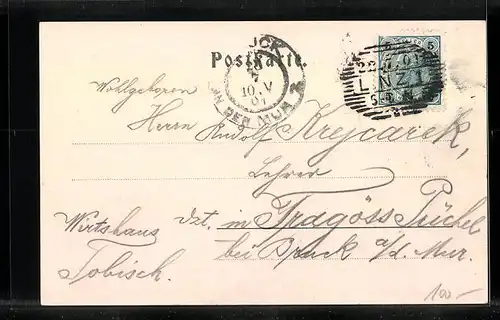 Postkarte.
BRUCK
10.V
01
AN DER MUR
LINZ 1
5
Wohlgeboren
Herrn Rudolf Krejcarek,
Lehrer
Wirtshaus dzt. in Tragöss Püchel
Tobisch. bei Bruck a/d. Mur.
100.-